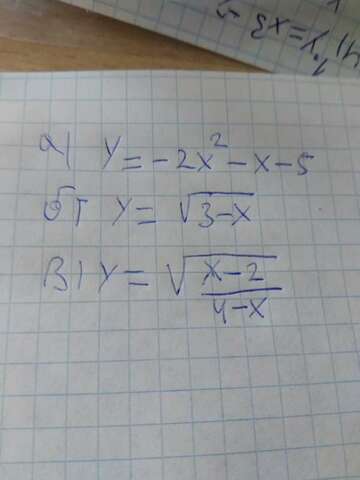 а) y = -2x² - x - 5
б) y = √(3-x)
в) y = √((x-2)/(4-x))